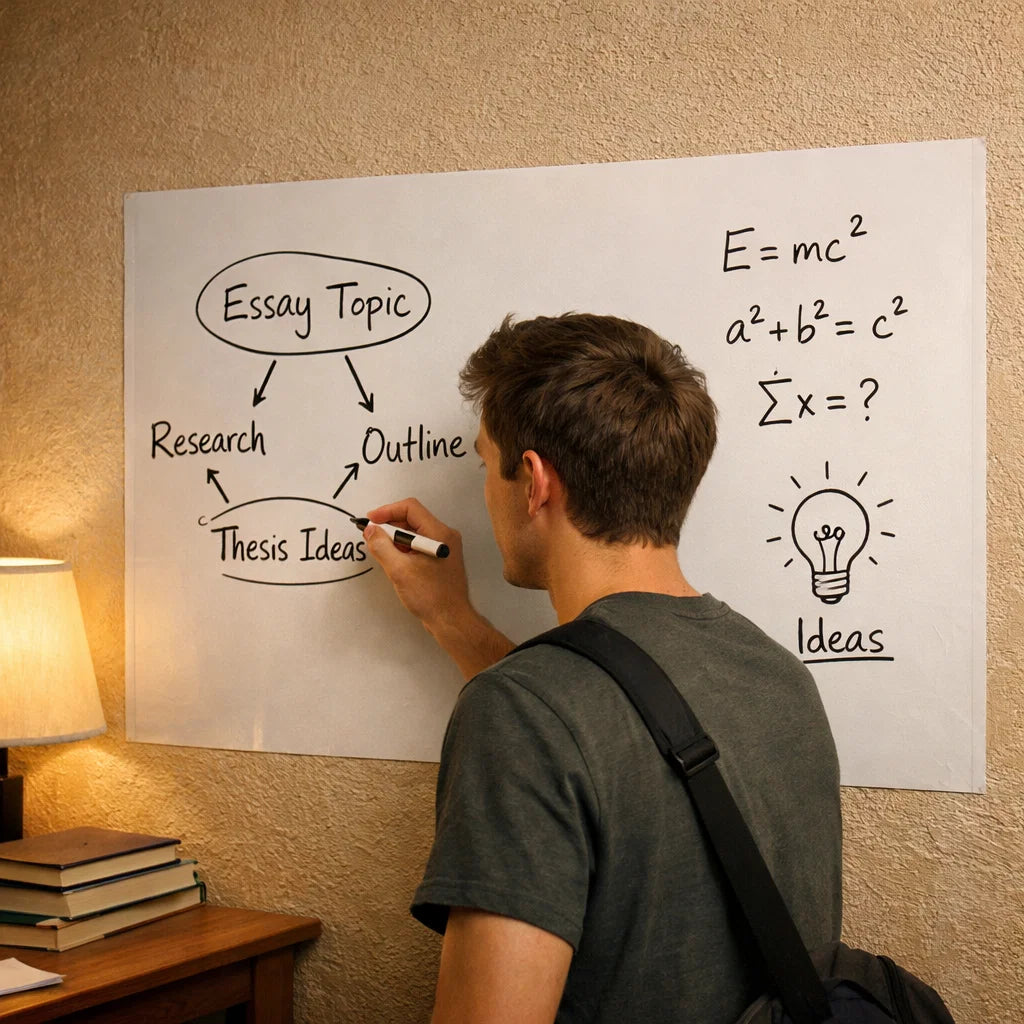 Essay Topic
Research
Outline
Thesis Ideas
E = mc²
a² + b² = c²
∑x = ?
Ideas